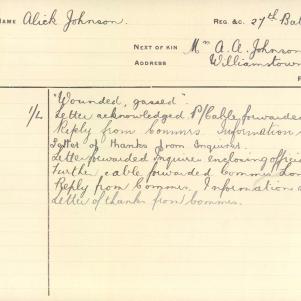 NAME Alick Johnson. REG &C. 27th Bat
NEXT OF KIN Mrs A. A. Johnson
ADDRESS Williamstown
"Wounded, gassed".
1/2 Letter acknowledged P/Cable forwarded
Reply from Commrs. Information
Letter of thanks from Inquirer.
Letter forwarded Inquirer enclosing offici
Further cable forwarded Commrs Lon
Reply from Commrs. Information
Letter of thanks from Commrs.